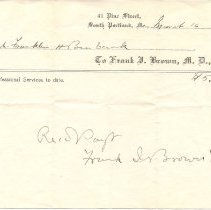 41 Pine Street,
South Portland, Me.
Franklin H
To Frank I. Brown, M. D.,
Professional Services to date.
Rec'd Payt
Frank I. Brown